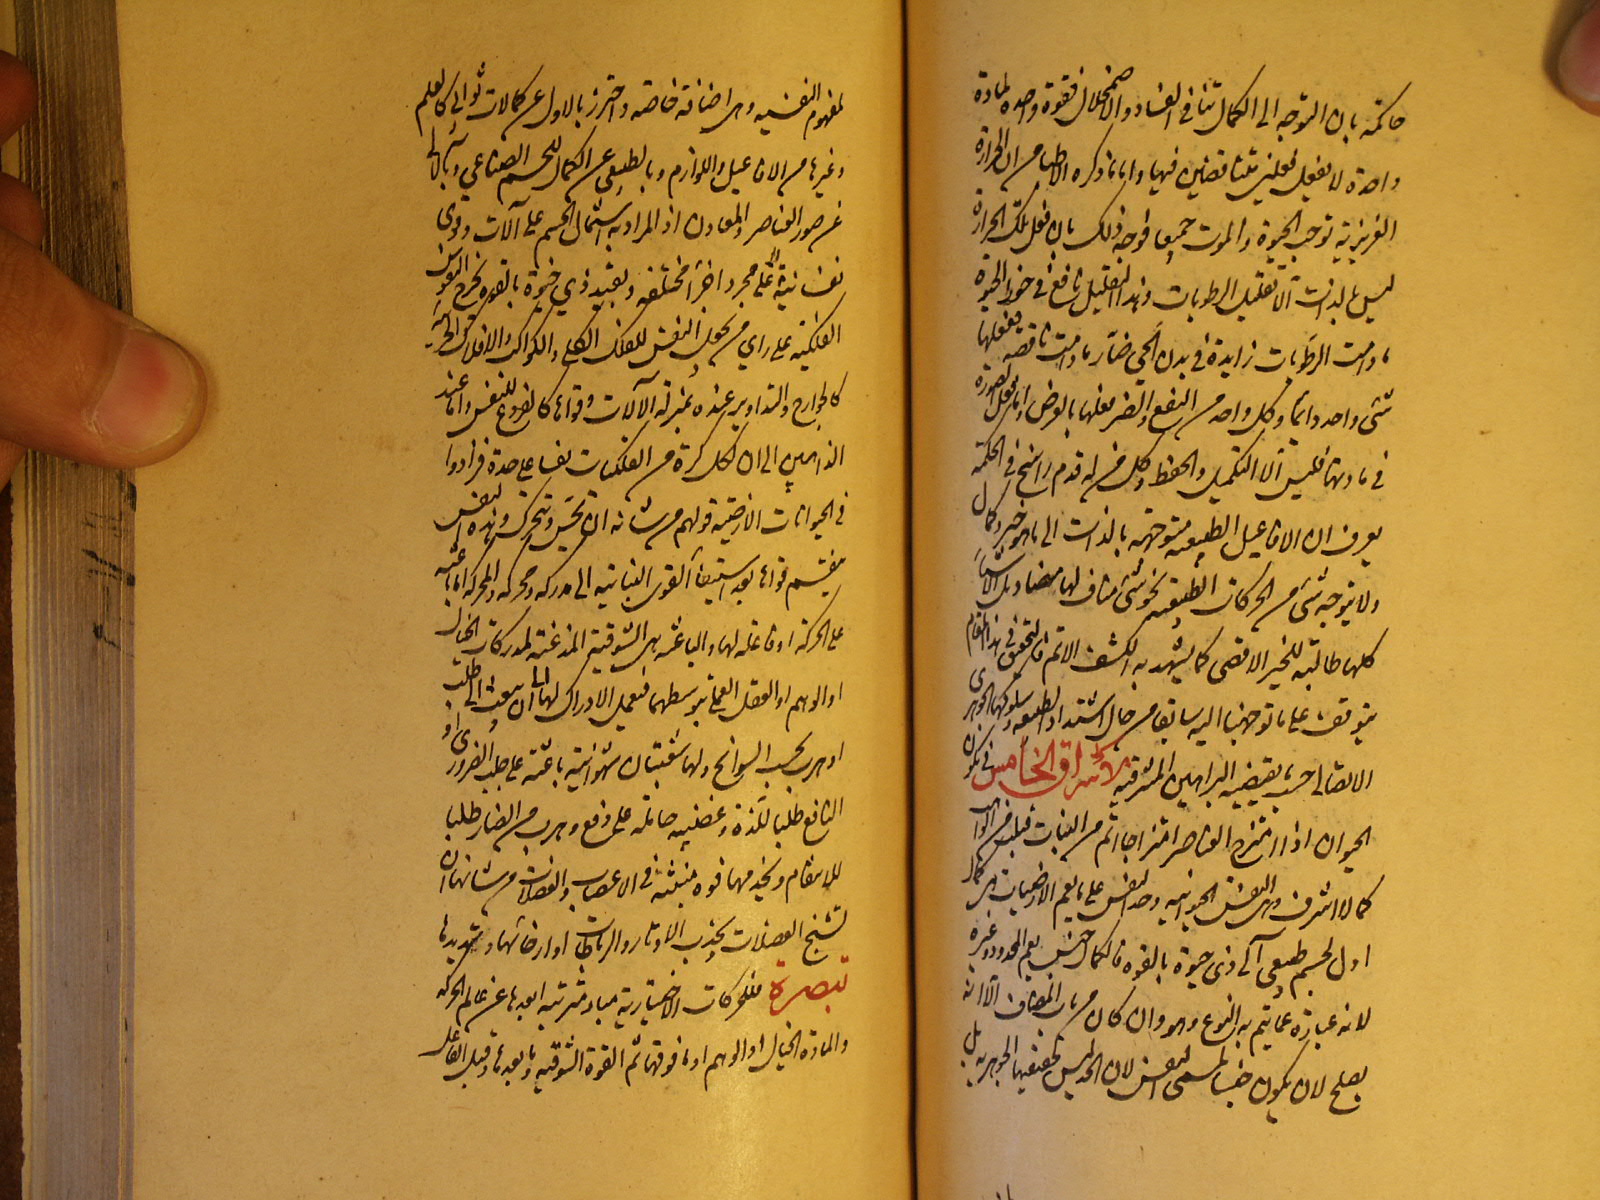 حاكمة بان التوجه الى الكمال ينافى الفساد والاضمحلال فقوة واحدة لمادة
واحدة لا تفعل فعلين متناقضين فيها واما ما ذكره الاطباء من ان الحرارة
الغريزية توجب الحيوة والموت جميعا فوجه ذلك بان فعل تلك الحرارة
ليس بالذات الا تقليل الرطوبات وهذا التقليل نافع فى حفظ الحيوة
ما دامت الرطوبات زايدة فى بدن الحى ضار ما دامت ناقصة ففعلها
شئ واحد دائما وكل واحد من النفع والضر فعلها بالعرض واما فعل الصورة
فى مادتها فليس الا التكميل والحفظ وكل من له قدم راسخ فى الحكمة
يعرف ان الافاعيل الطبيعية متوجهة بالذات الى ما هو خير وكمال
ولا يتوجه شئ من الحركات الطبيعية نحو شئ مناف لها مضاد بل الاشياء
كلها طالبة للخير الاقصى كما يشهد به الكشف الاتم فالتحقيق فى هذا المقام
يتوقف على ما توجهنا اليه سابقا من حال اشتداد الطبيعة وسلوكها الجوهرى
الاتصالى حسب ما يقتضيه البراهين المشرقية الاشراق الخامس فى تكون
الحيوان اذا امتزج العناصر امتزاجا اتم من النبات قبلت من الواهب
كمالا اشرف وهى النفس الحيوانية وحد النفس على ما يعم الارضيات هى كمال
اول لجسم طبيعى آلى ذى حيوة بالقوة فالكمال جنس يعم المحدود وغيره
لانه عبارة عما يتم به النوع وهو وان كان من باب المضاف الا انه
يصلح لان يكون جنسا لمسمى النفس لان الحد ليس لحقيقتها الجوهرية بل
لمفهوم النفسية وهى اضافة خاصة واحترز بالاول عن كمالات ثوانى كالعلم
وغيرها من الافاعيل واللوازم وبالطبيعى عن الكمال للجسم الصناعى وبالالى
عن صور العناصر والمعادن اذ المراد به اشتمال الجسم على آلات وقوى
نفسانية لا على مجرد اجزاء مختلفة وبقيد ذى حيوة بالقوة يخرج النفوس
الفلكية على راى من يجعل النفس للفلك الكلى والكواكب والافلاك الجزئية
كالجوارح والتداوير عنده بمنزلة الآلات وقواها كالفروع للنفس واما عند
الذاهبين الى ان لكل كرة من الفلكيات نفسا على حدة فزادوا
فى الحيوانات الارضية قولهم من شانه ان يحس ويتحرك وهذه النفس
ينقسم قواها بعد استيفاء القوى النباتية الى مدركة ومحركة والمحركة اما باعثة
على الحركة او فاعلة لها والباعثة هى الشوقية المذعنة لمدركات الخيال
او الوهم او العقل العملى بتوسطهما فيحمل الادراك لها الى ان ينبعث الى طلب
او هرب بحسب السوانح ولها شعبتان شهوانية باعثة على جلب الضرورى او
النافع طلبا للذة وغضبية حاملة على دفع وهرب من الضار طلبا
للانتقام ويخدمها قوة منبثة فى الاعصاب والعضلات من شانها ان
تشنج العضلات بجذب الاوتار والرباطات او ارخائها وتمديدها
تبصرة فللحركات الاختيارية مباد مترتبة ابعدها عن عالم الحركة
والمادة الخيال او الوهم او ما فوقهما ثم القوة الشوقية وما بعدها وقبل الفاعل